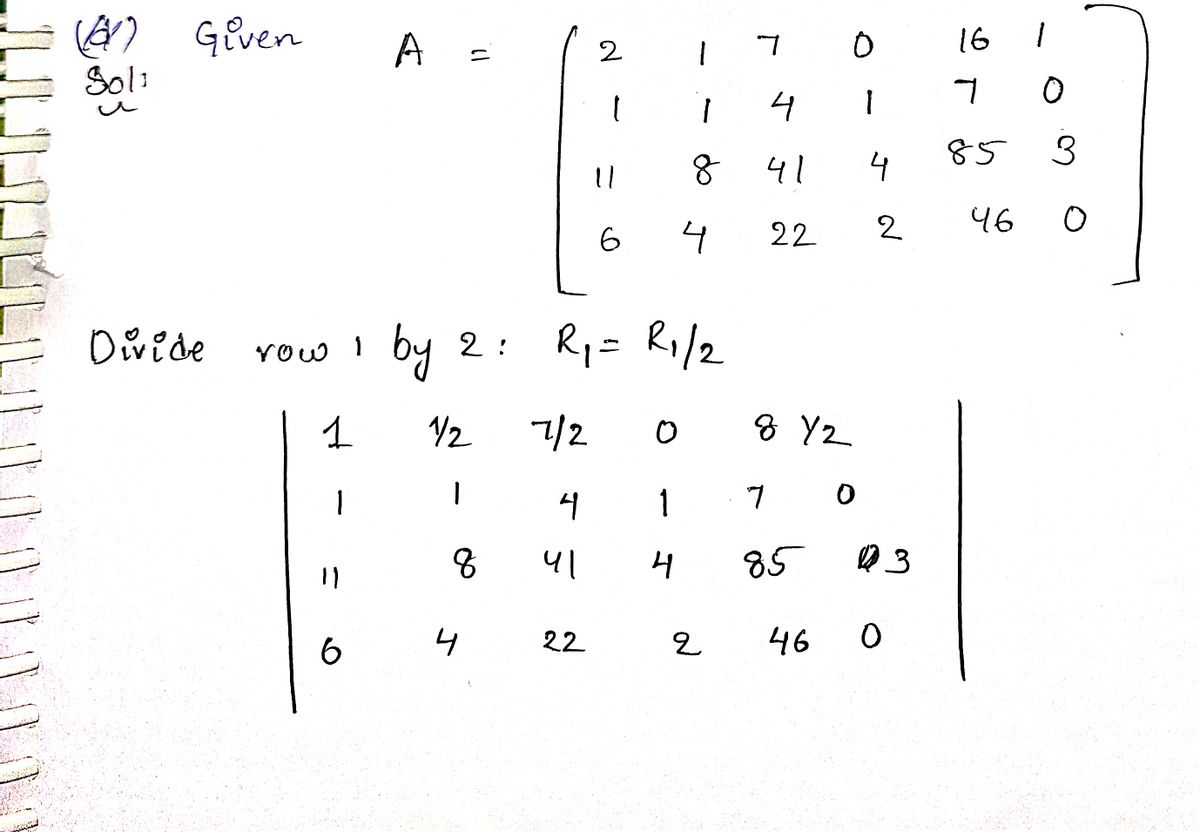 (d) Given A = 2 1 7 0 16 1
Sol: 1 1 4 1 7 0
11 8 41 4 85 3
6 4 22 2 46 0
Divide row 1 by 2: R₁ = R₁/2
1 1/2 7/2 0 8 1/2
1 1 4 1 7 0
11 8 41 4 85 3
6 4 22 2 46 0